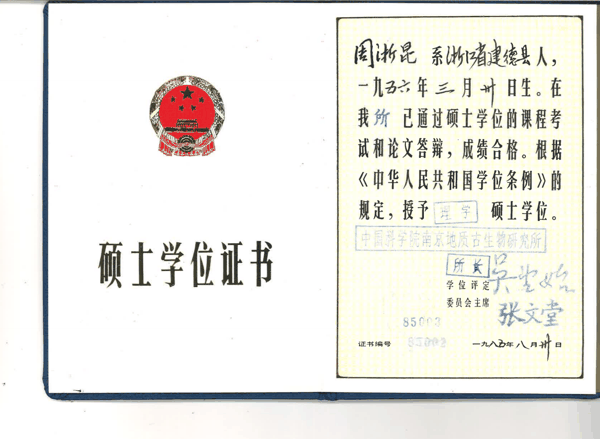 硕士学位证书
周浙昆 系浙江省建德县人，
一九五六年三月卅日生。在
我所已通过硕士学位的课程考
试和论文答辩，成绩合格。根据
《中华人民共和国学位条例》的
规定，授予 理学 硕士学位。
中国科学院南京地质古生物研究所
所长
学位评定
委员会主席 张文堂
85003
证书编号
一九八五年八月卅日